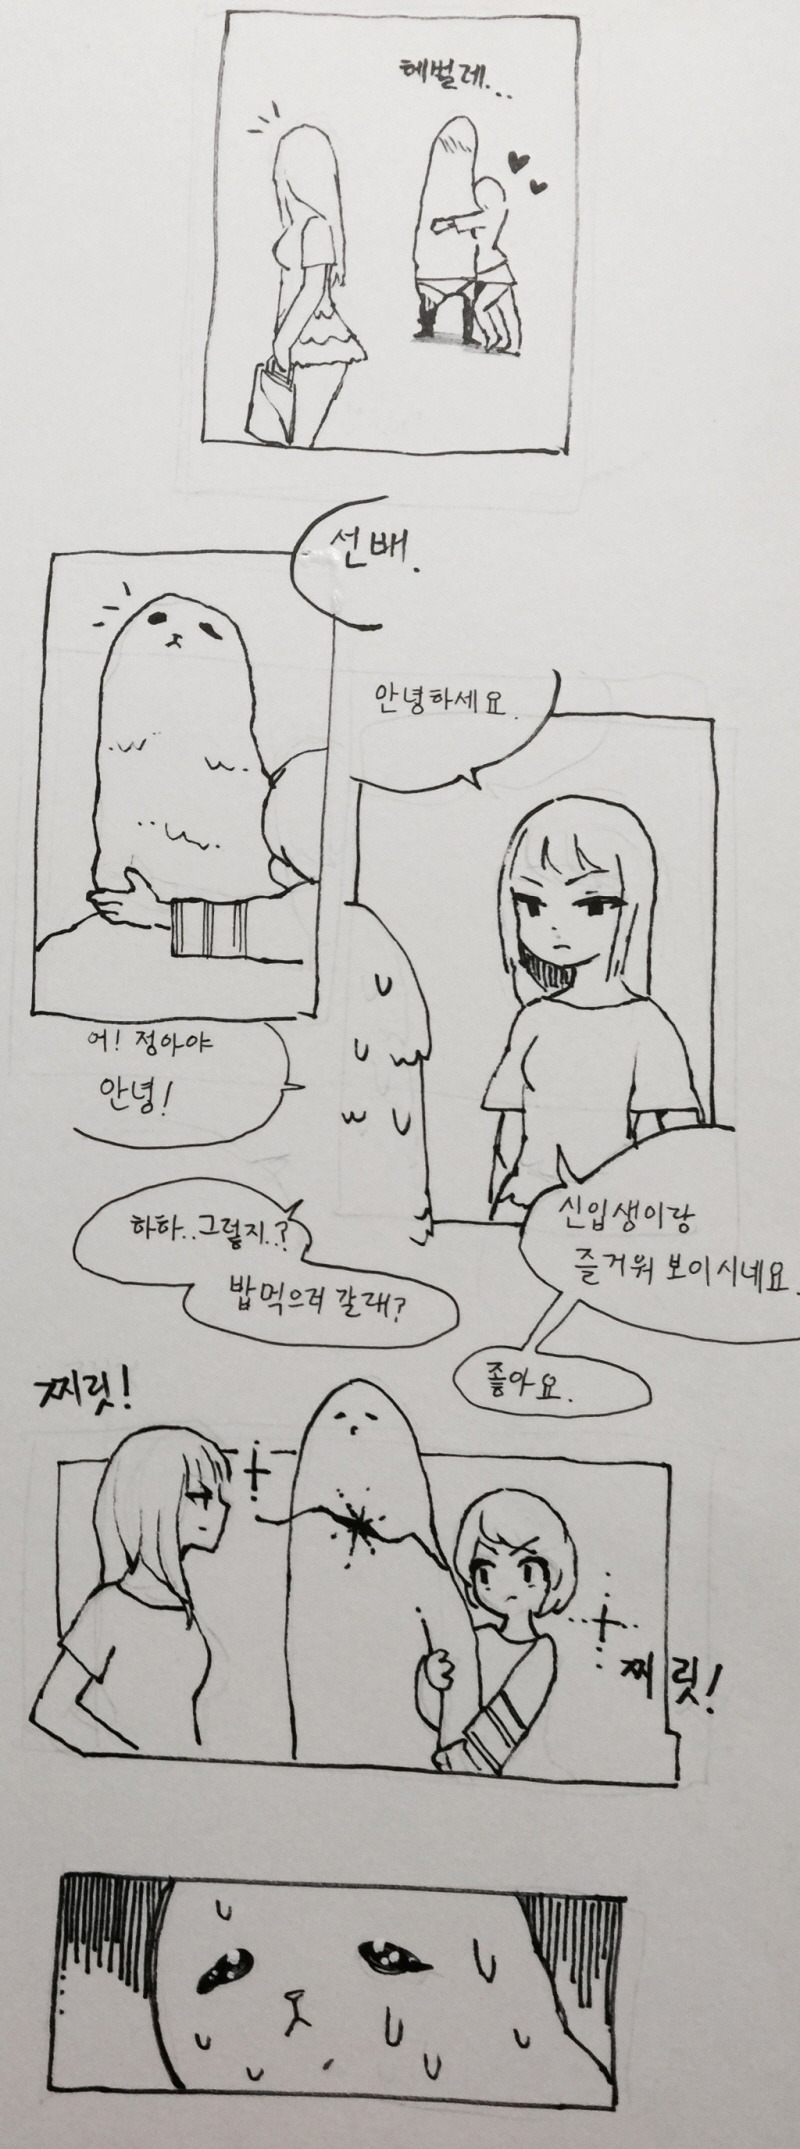 헤벌레...
선배.
안녕하세요.
어! 정아야
안녕!
신입생이랑
즐거워 보이시네요.
하하..그렇지.?
밥먹으러 갈래?
좋아요.
찌릿!
찌릿!